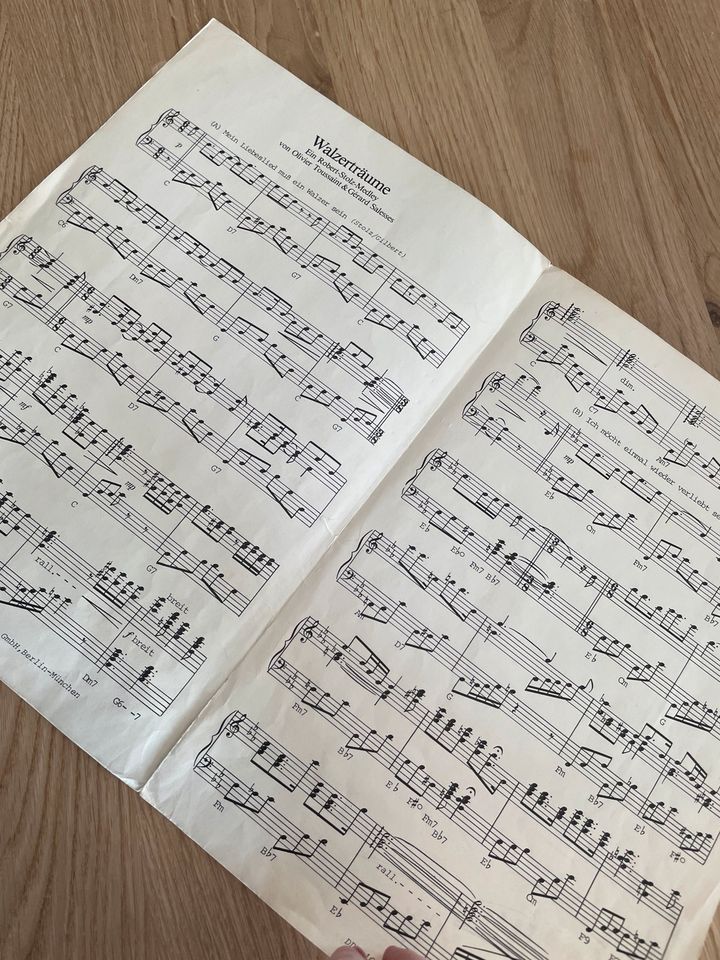 Walzerträume
Ein Robert-Stolz-Medley
von Olivier Toussaint & Gérard Salesses
(A) Mein Liebeslied muß ein Walzer sein (Stolz/Gilbert)
p
C D7 G7 C
C6 Dm7 G C G7
G7
mp
C D7 G7
mf
mp
C G7
rall.
breit
f breit
Dm7 G6 - -7
GmbH, Berlin-München
dim.
C C7 Am7
(B) Ich möcht einmal wieder verliebt
mp
Eb Cm
Eb Ebo Fm7 Bb7 Eb Cm
D7 G Cm G
Fm7 Bb7 Eb F#o Fm7 Bb7 Eb Fm Bb7 Eb F#o
Fm Bb7 Eb
rall.
F9